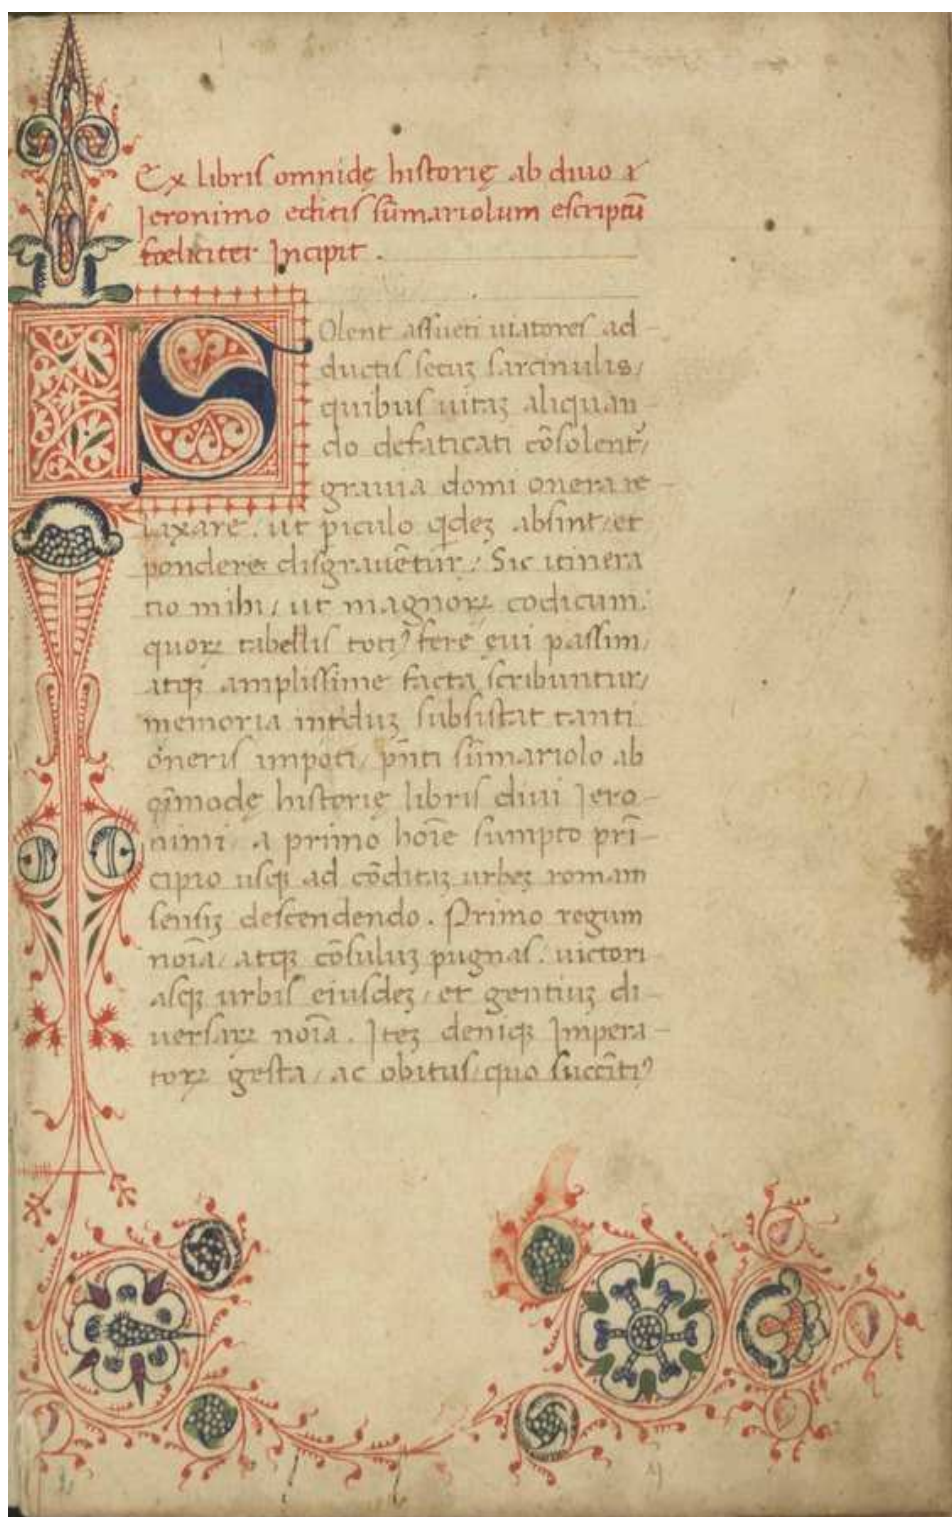 Ex libris omnidę historię ab diuo ꝛ
Jeronimo editis sūmariolum escriptū
foeliciter Incipit .
SOlent assueti uiatores ad
ductis secuꝫ sarcinulis/
quibus uitaꝫ aliquan
do defaticati cōsolent᷑/
grauia domi onera re
laxare . ut piculo qdeꝫ absint/ et
pondere disgrauētur/ Sic itinera
tio mihi/ ut magnoꝝ codicum.
quoꝝ tabellis totiꝰ fere ęui passim/
atqꝫ amplissime facta scribuntur/
memoria intduꝫ subsistat tanti
oneris impoti/ pn̄ti sūmariolo ab
oīmodę historię libris diui Jero
nimi/ a primo hoīe sumpto pri̅
cipio usqꝫ ad cōditaꝫ urbeꝫ romam
sensiꝫ descendendo . Primo regum
noīa/ atqꝫ cōsuluꝫ pugnas . uictori
asqꝫ urbis eiusdeꝫ/ et gentiuꝫ di
uersaꝝ noīa . Iteꝫ deniqꝫ Impera
toꝝ gesta/ ac obitus/ quo succītiꝰ